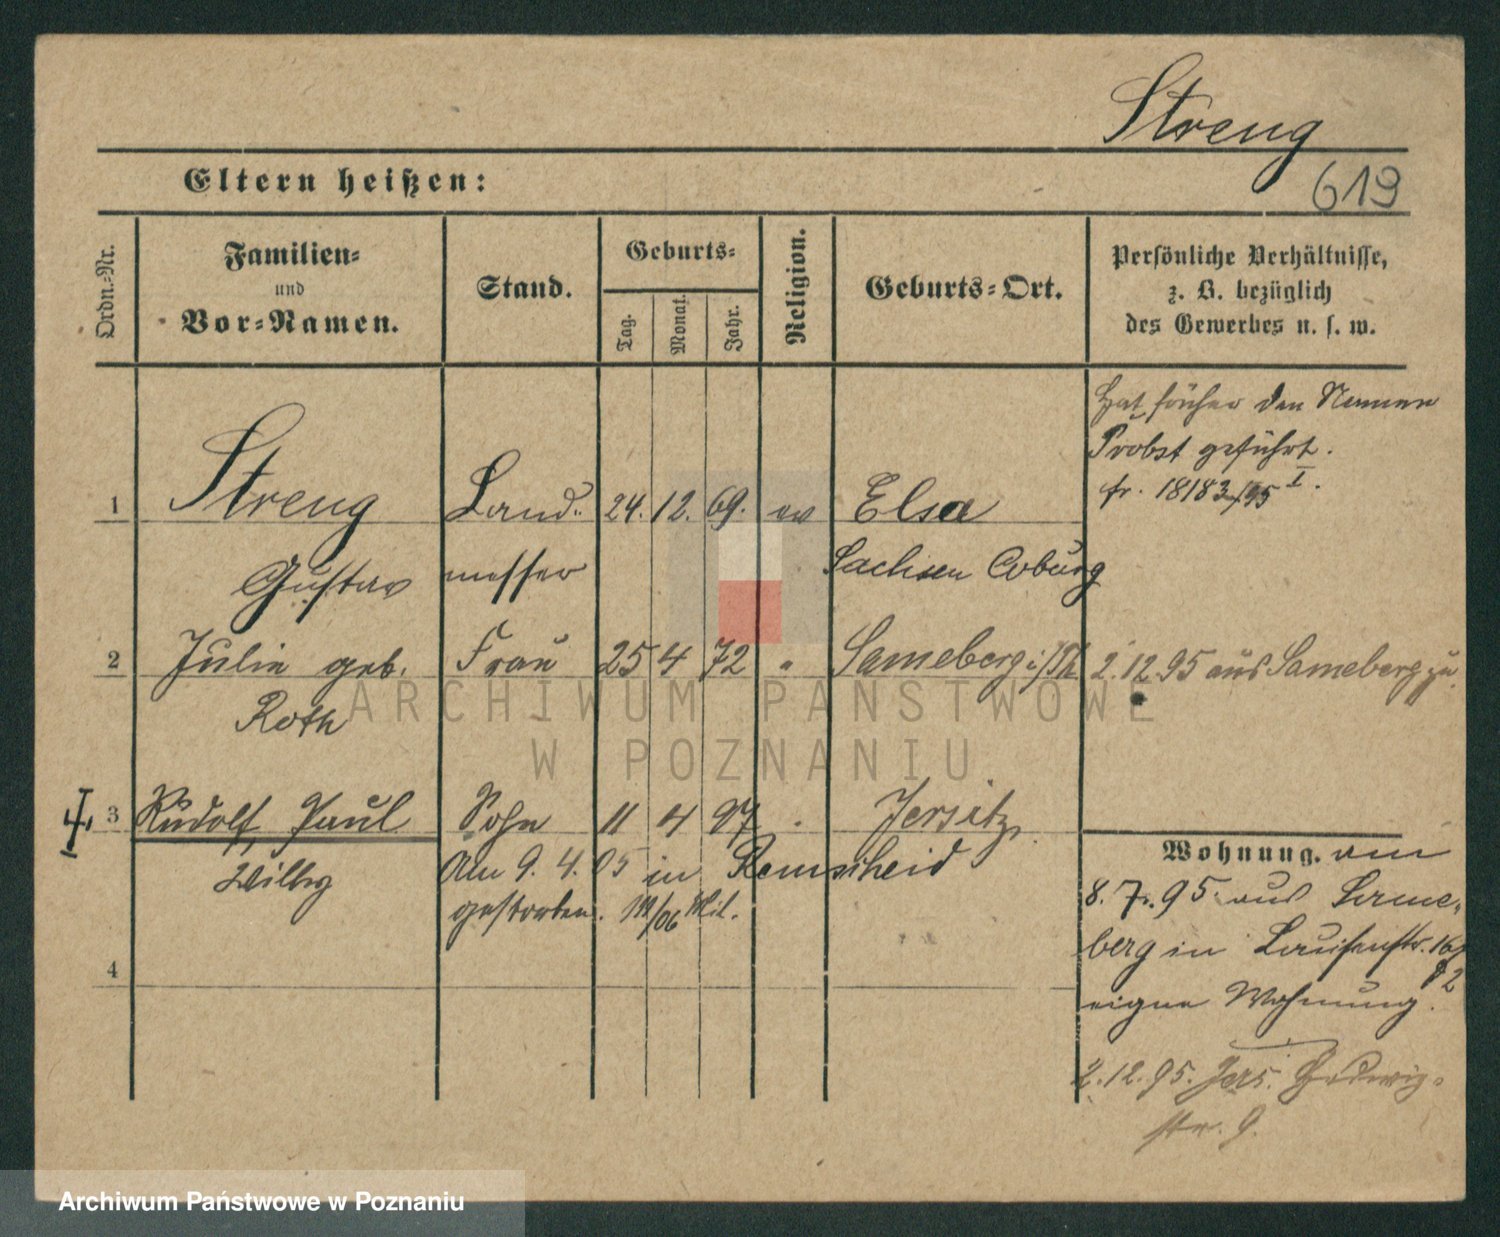 Streng
619
Eltern heißen:
Ordn.-Nr.
Familien-
und
Vor-Namen.
Stand.
Geburts-
Tag.
Monat.
Jahr.
Religion.
Geburts-Ort.
Persönliche Verhältnisse,
z. B. bezüglich
des Gewerbes u. s. w.
Hat früher den Namen
Probst geführt.
fr. 18183/95 I.
1 Streng Land- 24. 12. 69. ev Elsa
Gustav messer Sachsen Coburg
2 Julie geb. Frau 25 4 72 " Sameberg i/Th 2.12.95 aus Sameberg zu.
Roth
ARCHIWUM PAŃSTWOWE
W POZNANIU
3 Rudolf, Paul Sohn 11 4 97 " Jersitz.
Willy
Am 9. 4. 05 in Remscheid
gestorben. /06 Mil.
4
Wohnung. am
8. 7. 95 aus Same-
berg in Louisenstr. 16
eigne Wohnung.
2.12.95. Jers. Hedwig-
str. 9.
Archiwum Państwowe w Poznaniu